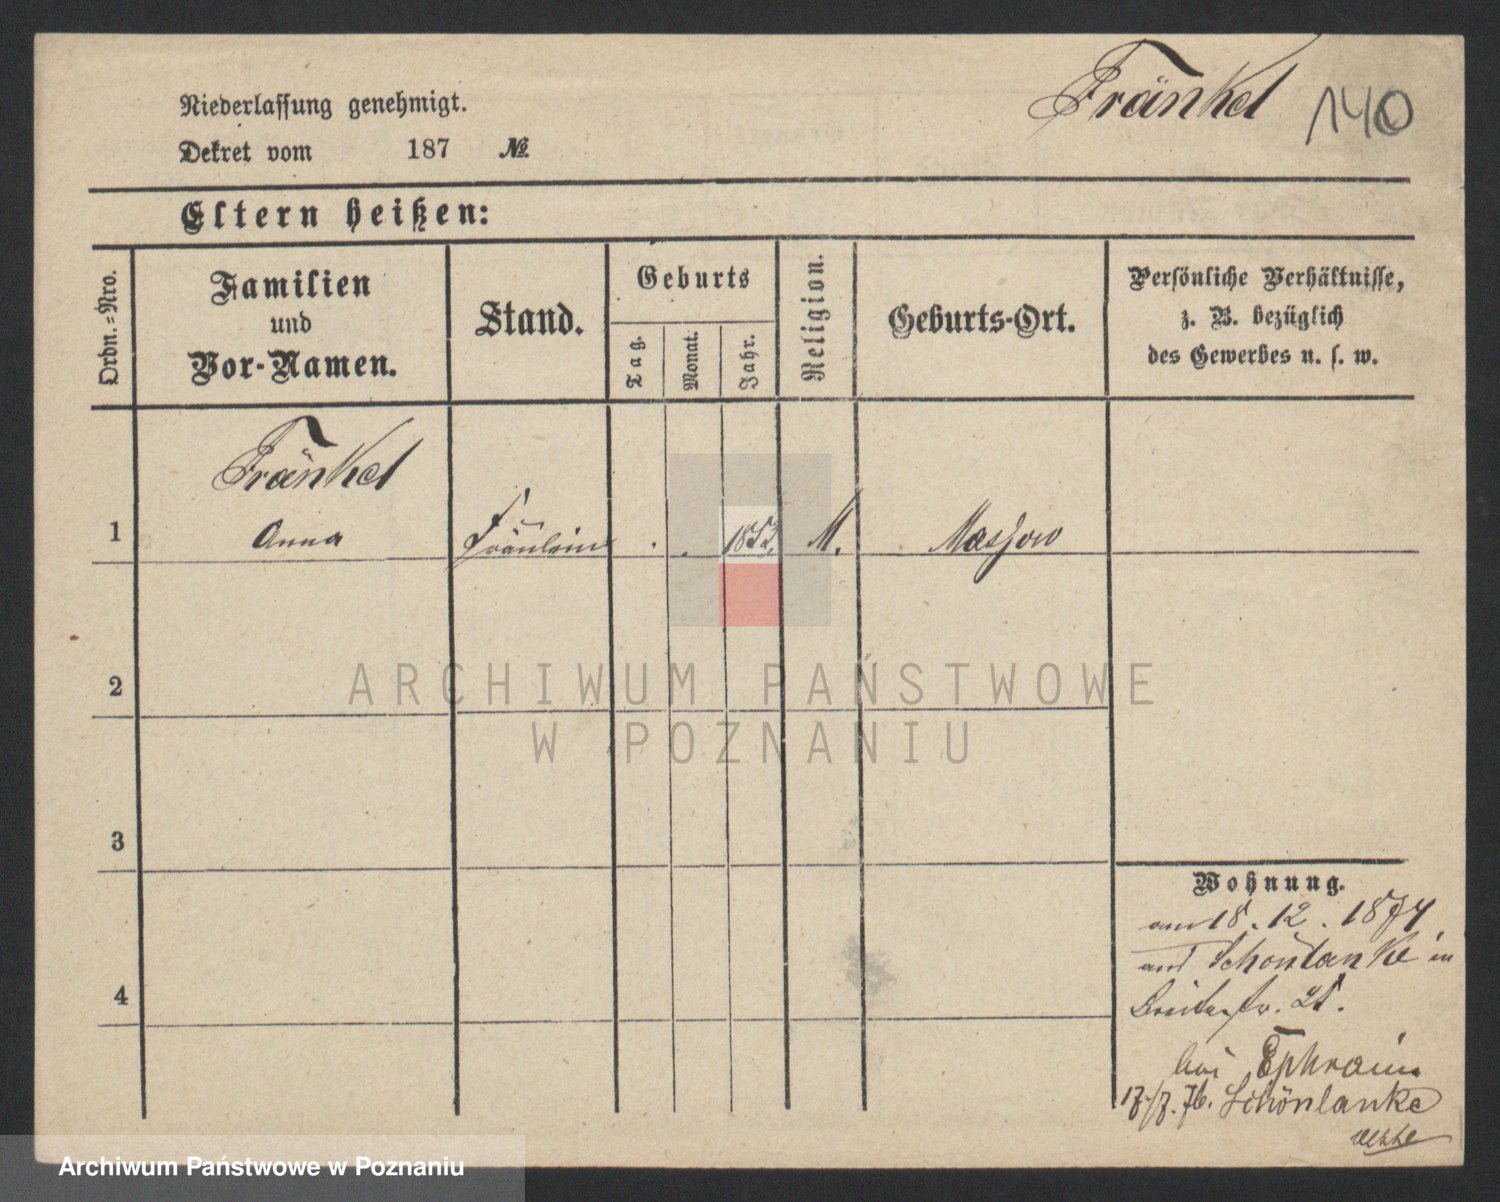 Fränkel 140
Niederlassung genehmigt.
Dekret vom 187 №
Eltern heißen:
Ordn.=Nro.
Familien
und
Vor-Namen.
Stand.
Geburts
Tag.
Monat.
Jahr.
Religion.
Geburts-Ort.
Persönliche Verhältnisse,
z. B. bezüglich
des Gewerbes u. s. w.
Fränkel
1 Anna Fräulein . . 1852 M. Massow
2
3
4
Wohnung.
am 18. 12. 1874
aus Schönlanke in
Breitestr. 25.
bei Ephraim
Schönlanke
ARCHIWUM PAŃSTWOWE
W POZNANIU
Archiwum Państwowe w Poznaniu